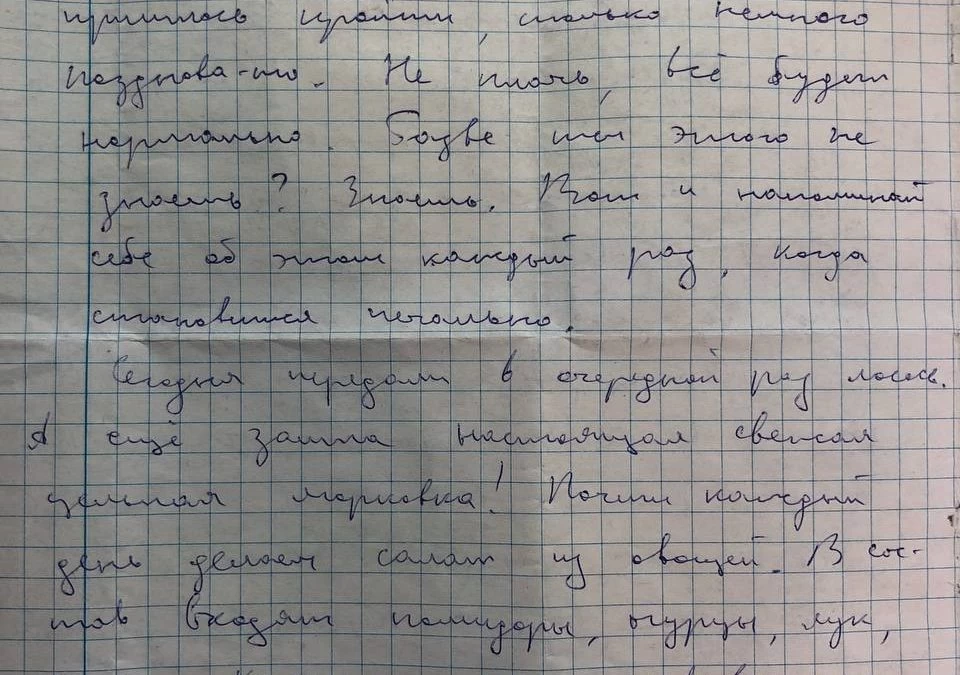 пришлось пройти, только немного
поздновато. Не плачь, всё будет
нормально. Разве ты этого не
знаешь? Знаешь. Вот и напоминай
себе об этом каждый раз, когда
становится печально.
Сегодня передали в очередной раз лосось.
А ещё зашла настоящая свежая
цельная морковка! Почти каждый
день делаем салат из овощей. В сос-
тав входят помидоры, огурцы, лук,